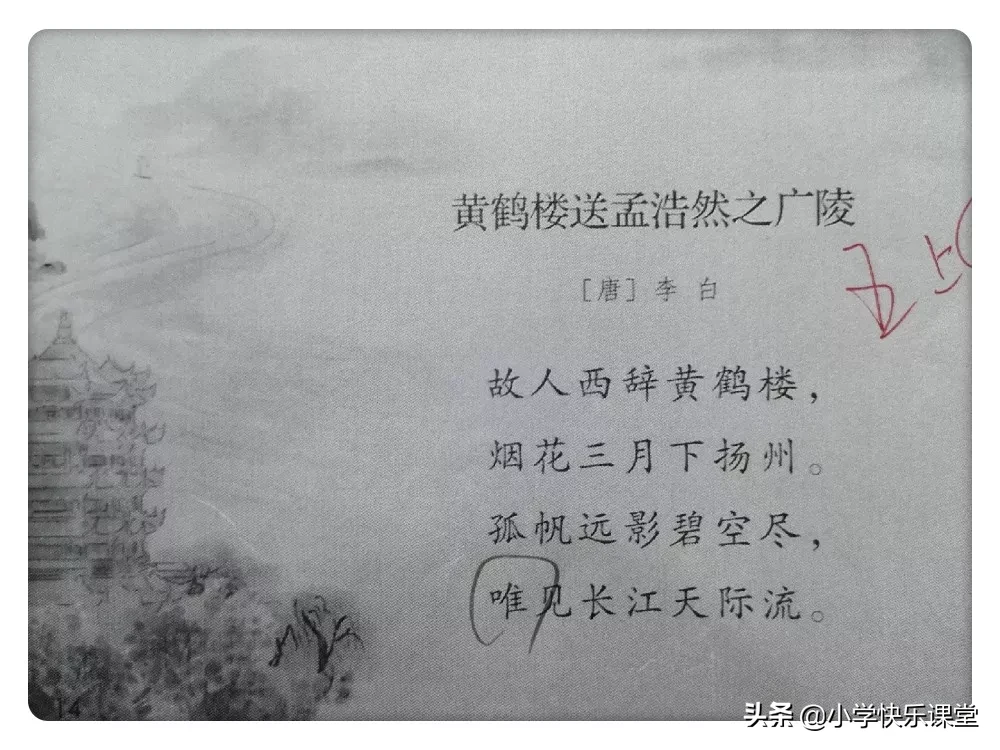 黄鹤楼送孟浩然之广陵
［唐］李 白
故人西辞黄鹤楼，
烟花三月下扬州。
孤帆远影碧空尽，
唯见长江天际流。
14
头条 @小学快乐课堂